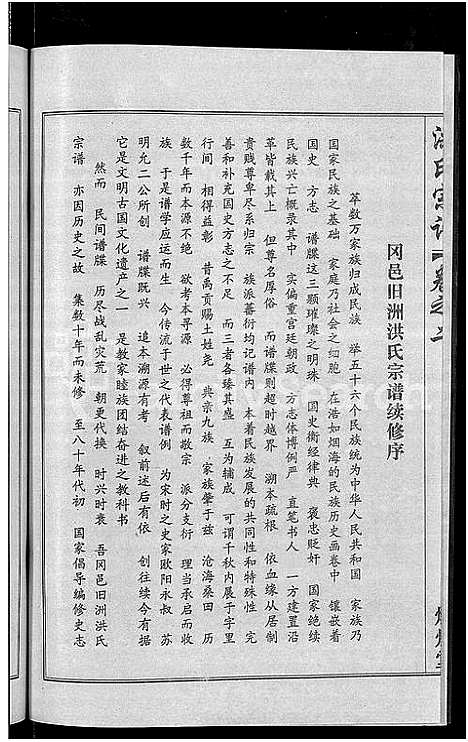 洪氏宗谱
卷之二
冈邑旧洲洪氏宗谱续修序
萃数万家族归成民族 举五十六个民族统为中华人民共和国 家族乃
国家民族之基础 家庭乃社会之细胞 在浩如烟海的民族历史画卷中 镶嵌着
国史 方志 谱牒这三颗璀璨之明珠 国史衡经律典 褒忠贬奸 国家绝续
民族兴亡概录其中 实偏重宫廷朝政 方志体博例严 直笔书人 一方建置沿
革皆载其上 但尊名厚俗 而谱牒则超时越界 溯本疏根 依血缘从居制
贵贱尊卑尽系归宗 族派蕃衍均记谱内 本着民族发展的共同性和特殊性 完
善和补充国史方志之不足 而三者各臻其盛 互为辅成 可谓千秋内展于字里
行间 相得益彰 昔禹贡赐土姓尧 典亲九族 家族肇于兹 沧海桑田 历
数千年而本源不绝 欲考本寻源 必得尊祖而敬宗 派分支衍 理当承启而收
族 于是谱学应运而生 今传流于世之代表谱例 为宋时之史家欧阳永叔 苏
明允二公所创 谱牒既兴 追本溯源有考 叙前述后有依 创往续今有据
它是文明古国文化遗产之一 是教家睦族团结奋进之教科书
然而 民间谱牒 历尽战乱灾荒 朝更代换 时兴时衰 吾冈邑旧洲洪氏
宗谱 亦因历史之故 集数十年而未修 至八十年代初 国家倡导编修史志